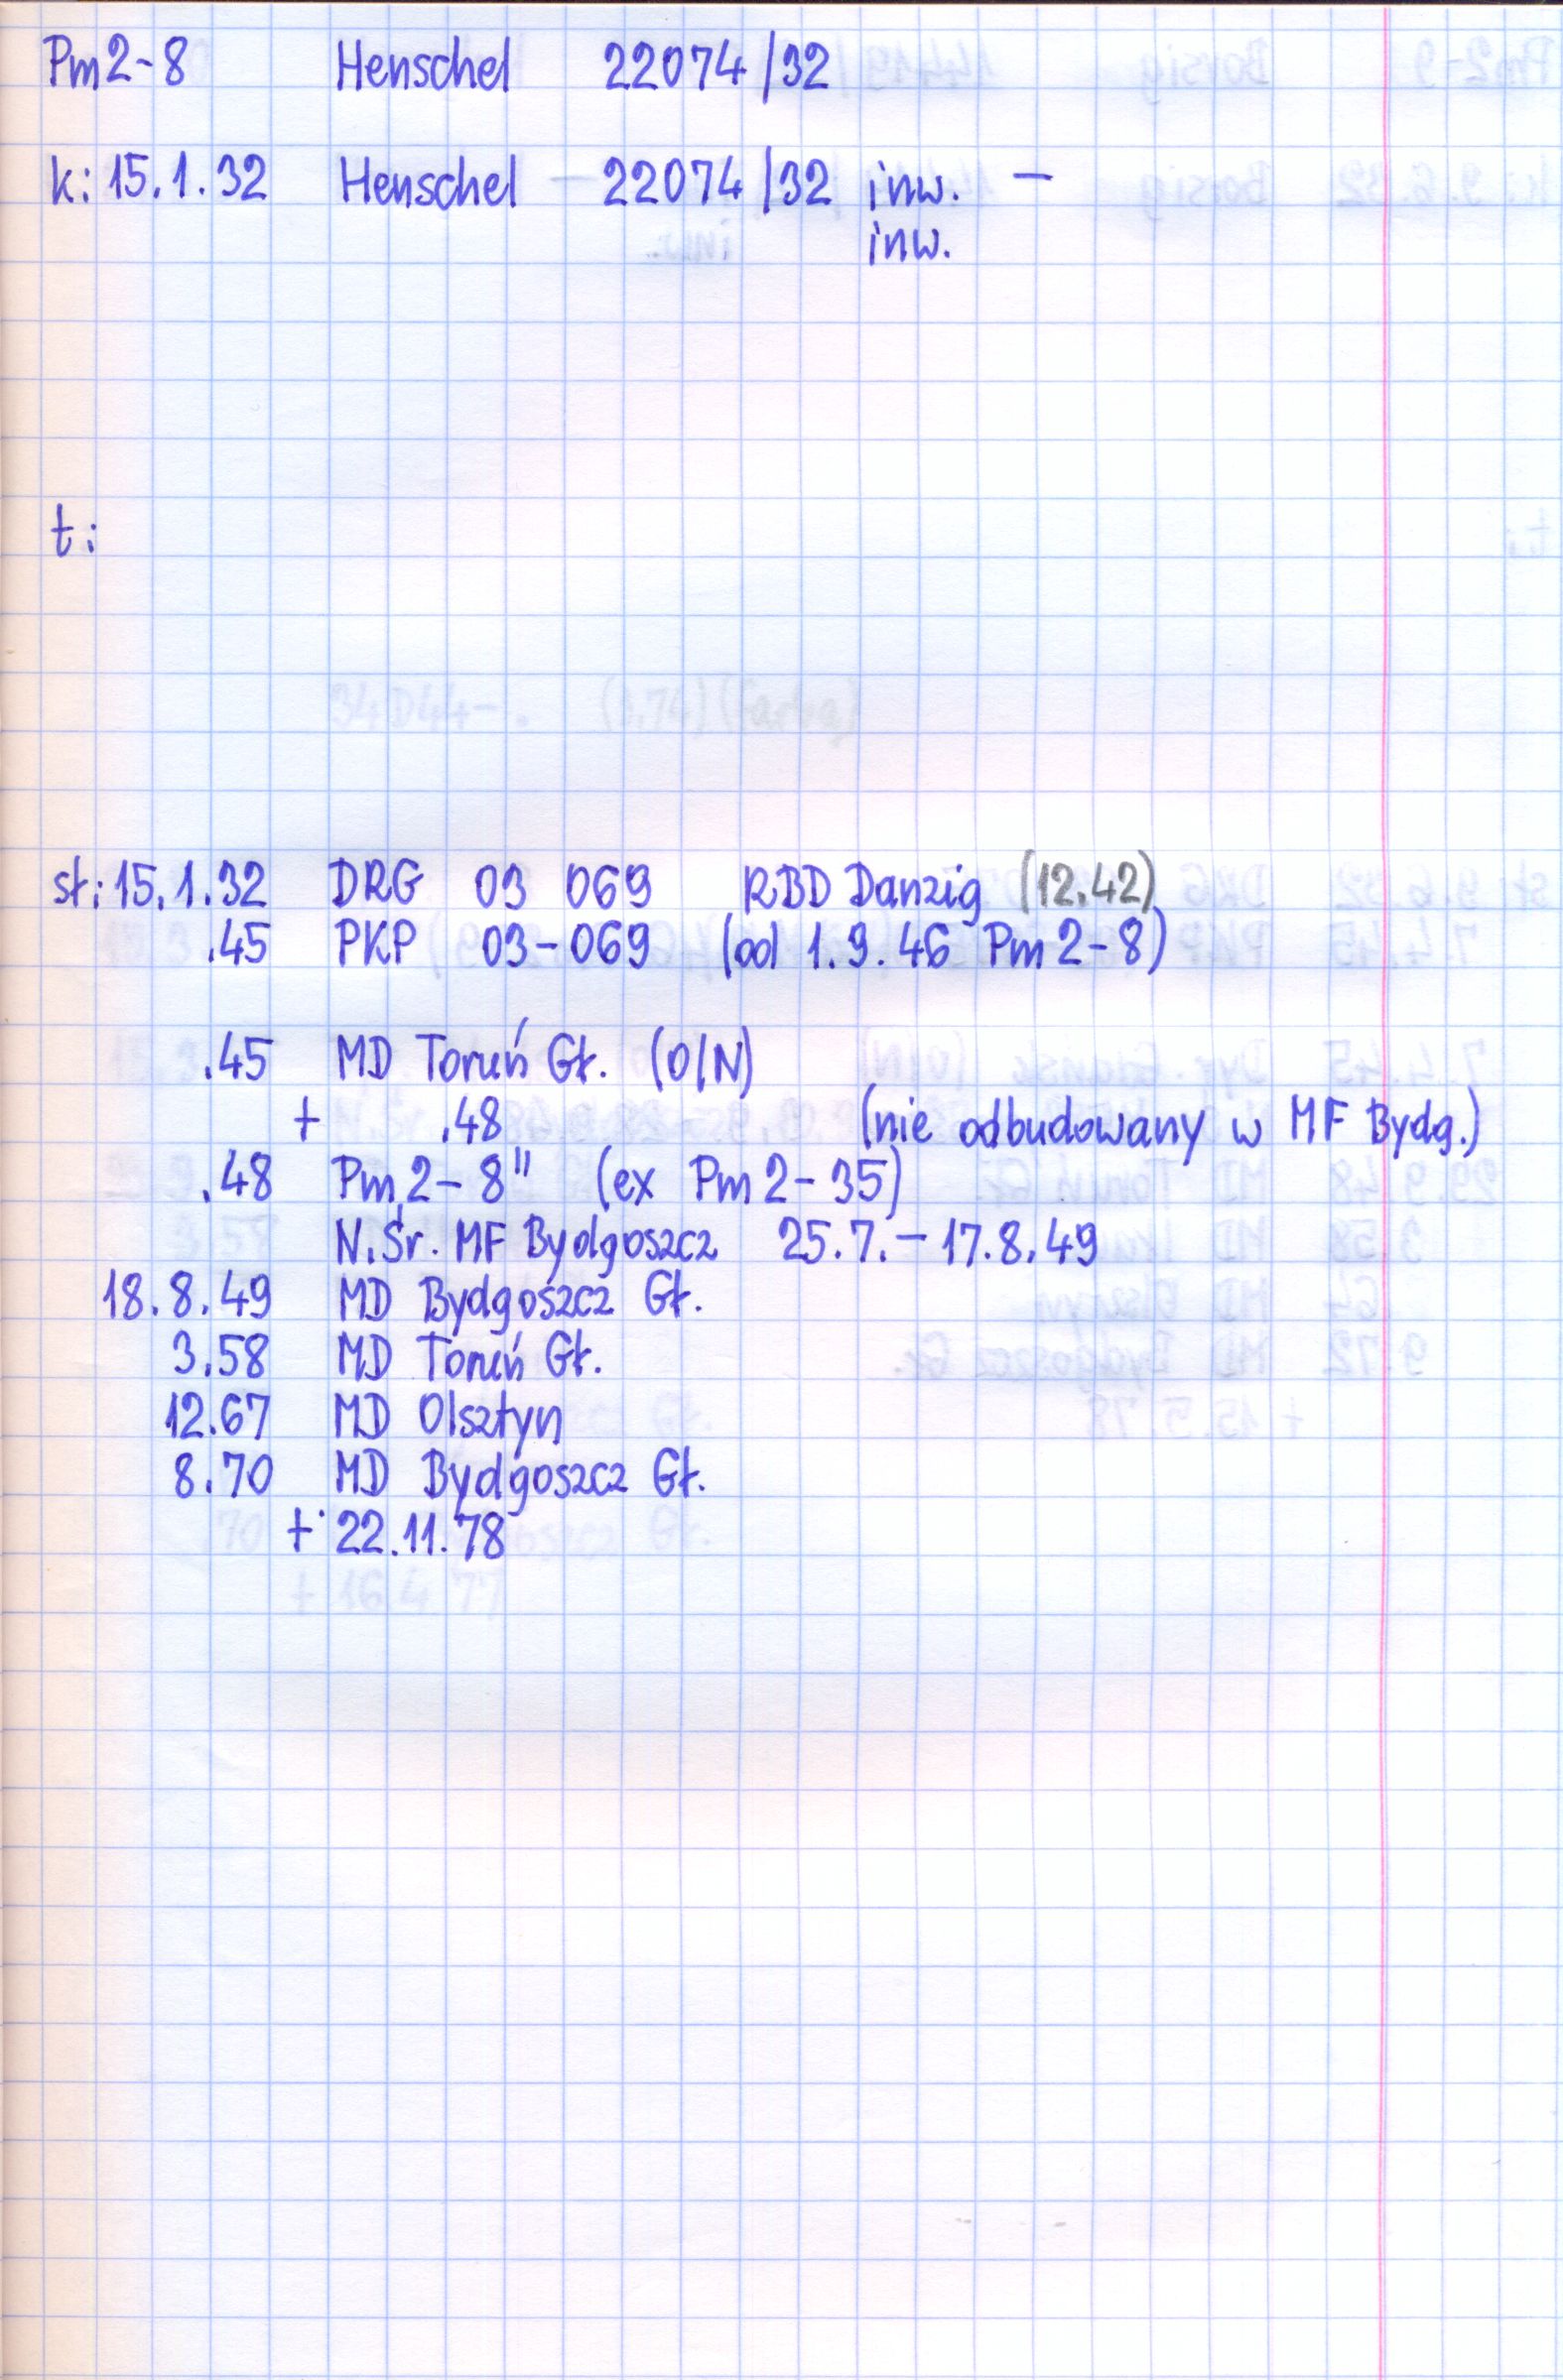 Pm2-8 Henschel 22074/32
k: 15.1.32 Henschel - 22074/32 inw. -
inw.
t:
st: 15.1.32 DRG 03 069 RBD Danzig (12.42)
.45 PKP 03-069 (od 1.9.46 Pm2-8)
.45 MD Toruń Gł. (O/N)
+ .48 (nie odbudowany w MF Bydg.)
.48 Pm2-8" (ex Pm2-35)
N.Śr. MF Bydgoszcz 25.7.-17.8.49
18.8.49 MD Bydgoszcz Gł.
3.58 MD Toruń Gł.
12.67 MD Olsztyn
8.70 MD Bydgoszcz Gł.
+ 22.11.78